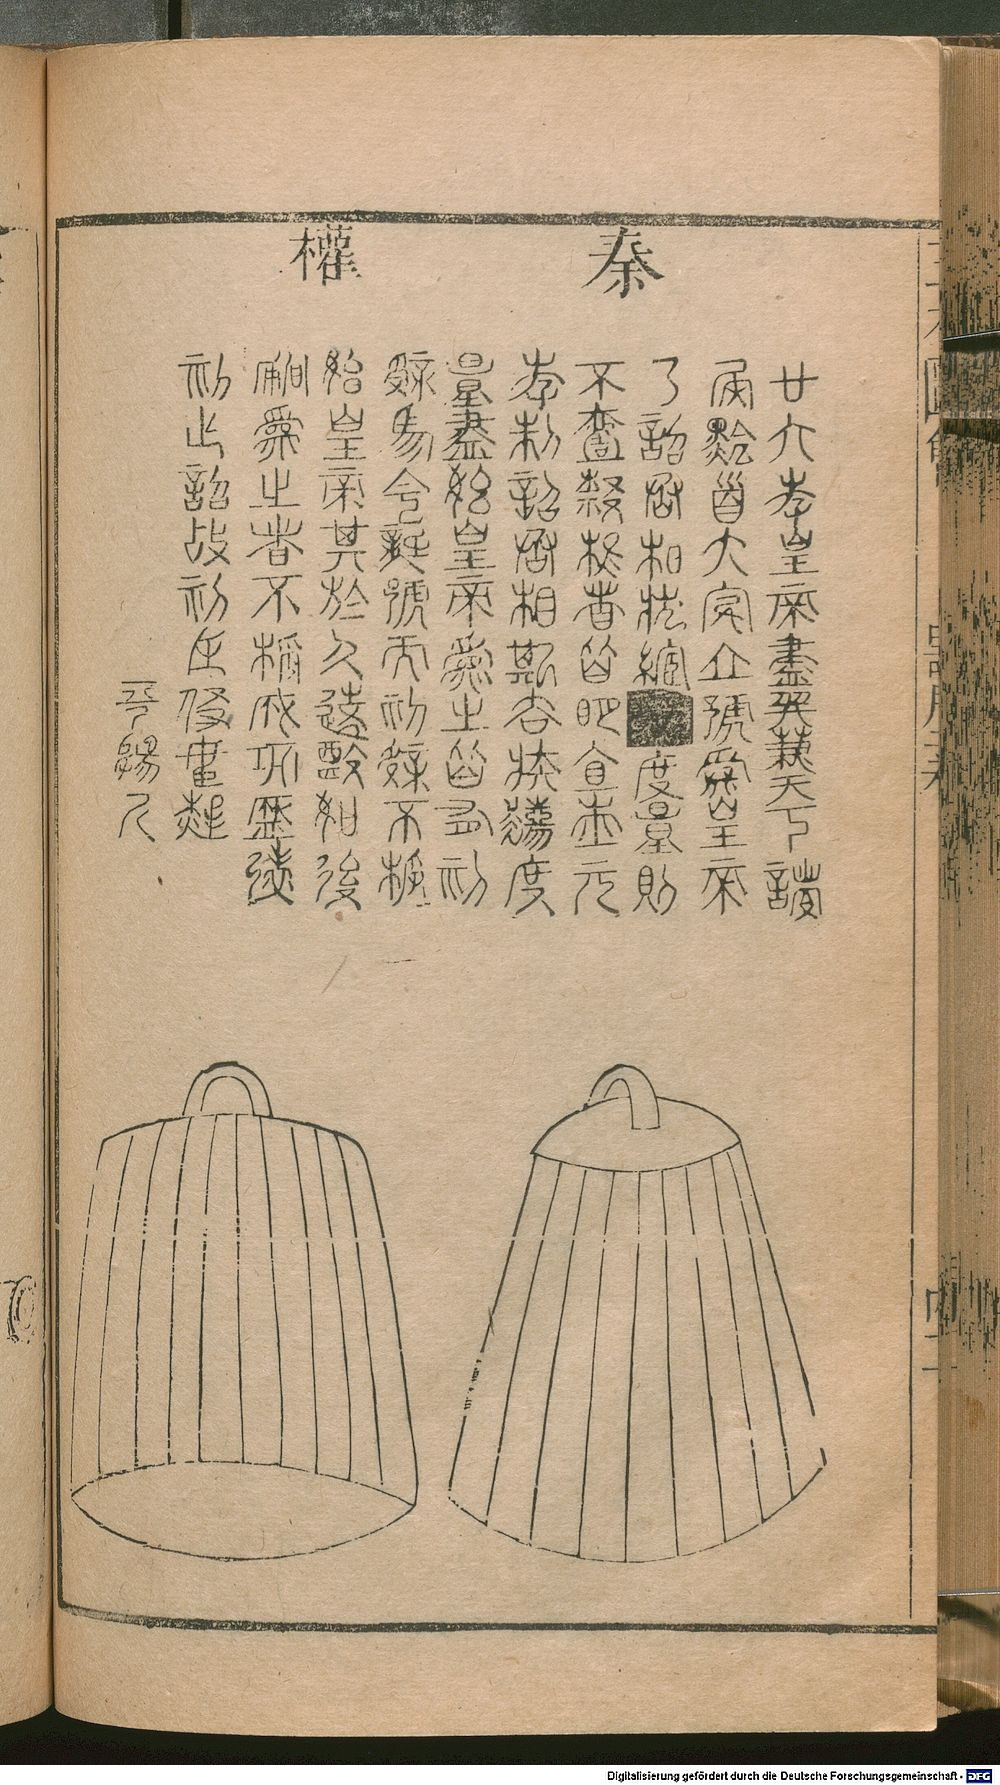 秦權
廿六年皇帝盡并兼天下諸
侯黔首大安立號為皇帝
乃詔丞相狀綰度量則
不壹歉疑者皆明壹之元
年制詔丞相斯去疾灋度
量盡始皇帝為之皆有刻
辭焉今襲號而刻辭不稱
始皇帝其於久遠殹如後
嗣為之者不稱成功盛德
刻此詔故刻左使毋疑
平陽斤
Digitalisierung gefördert durch die Deutsche Forschungsgemeinschaft - DFG